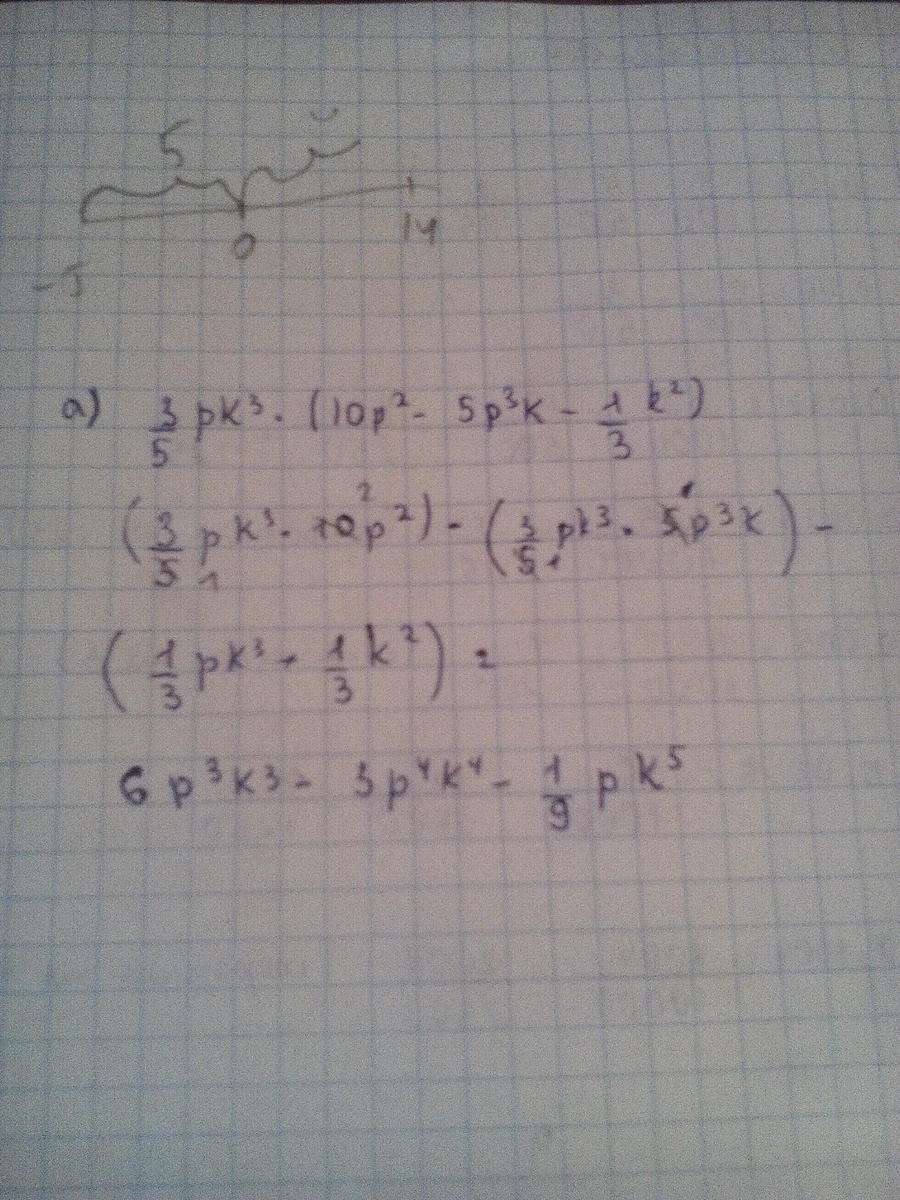 5
-5 0 14
a) 3/5 pk³ · (10p² - 5p³k - 1/3 k²)
(3/5 pk³ · 10p²) - (3/5 pk³ · 5p³k) -
(1/3 pk³ · 1/3 k²) =
6p³k³ - 3p⁴k⁴ - 1/9 pk⁵